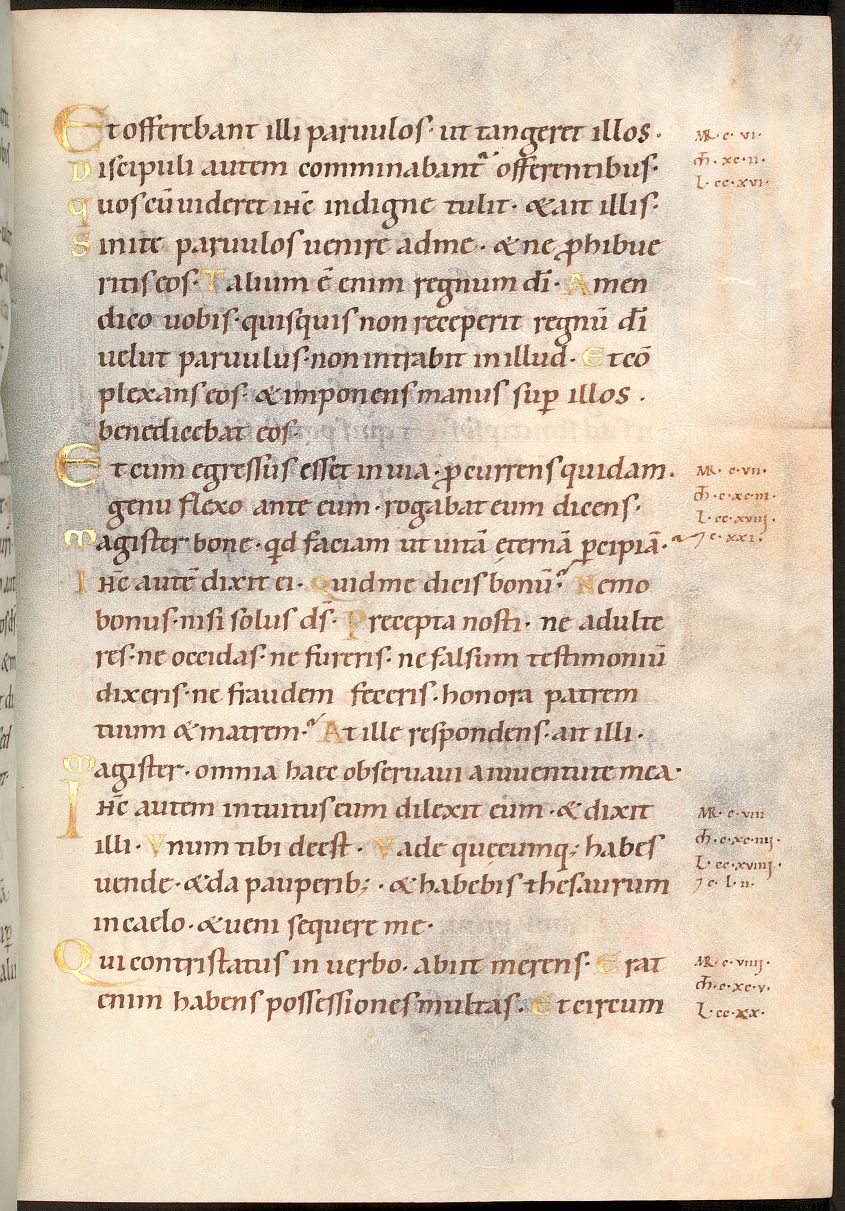 94
Et offerebant illi paruulos· ut tangeret illos·
Discipuli autem comminabant᷑ offerentibus·
quos cū uideret ihc̄ indigne tulit· & ait illis·
Sinite paruulos uenire adme· & ne ꝓhibue
ritis eos· Talium ē enim regnum dī· Amen
dico uobis· quisquis non receperit regnū dī
uelut paruulus· non intrabit inillud· Et cō
plexans eos· & imponens manus suꝑ illos·
benedicebat eos·
Et cum egressus esset inuia· ꝓcurrens quidam·
genu flexo ante eum· rogabat eum dicens·
Magister bone· qd̄ faciam ut uitā ęternā ꝑcipiā·
Ihc̄ autē dixit ei· Quidme dicis bonū· Nemo
bonus· nisi solus ds̄· Precepta nosti· ne adulte
res· ne occidas· ne fureris· ne falsum testimoniū
dixeris· ne fraudem feceris· honora patrem
tuum & matrem· At ille respondens· ait illi·
Magister· omnia haec obseruaui a iuuentute mea·
Ihc̄ autem intuitus eum dilexit eum· & dixit
illi· Vnum tibi deest· Vade quęcumq; habes
uende· & da pauperib;· & habebis thesaurum
in caelo· & ueni sequere me·
Qui contristatus in uerbo· abiit merens· Erat
enim habens possessiones multas· Et circum
MR· c· vi·
Mh̄· xc· ii·
L· cc· xvi·
MR· c· vii·
Mh̄· c· xc· iii·
L· cc· xviii·
⁊ c· xxi·
MR· c· viii
Mh̄· c· xc· iiii·
L· cc· xviiii·
⁊ c· l· ii·
MR· c· viiii·
Mh̄· c· xc· v·
L· cc· xx·